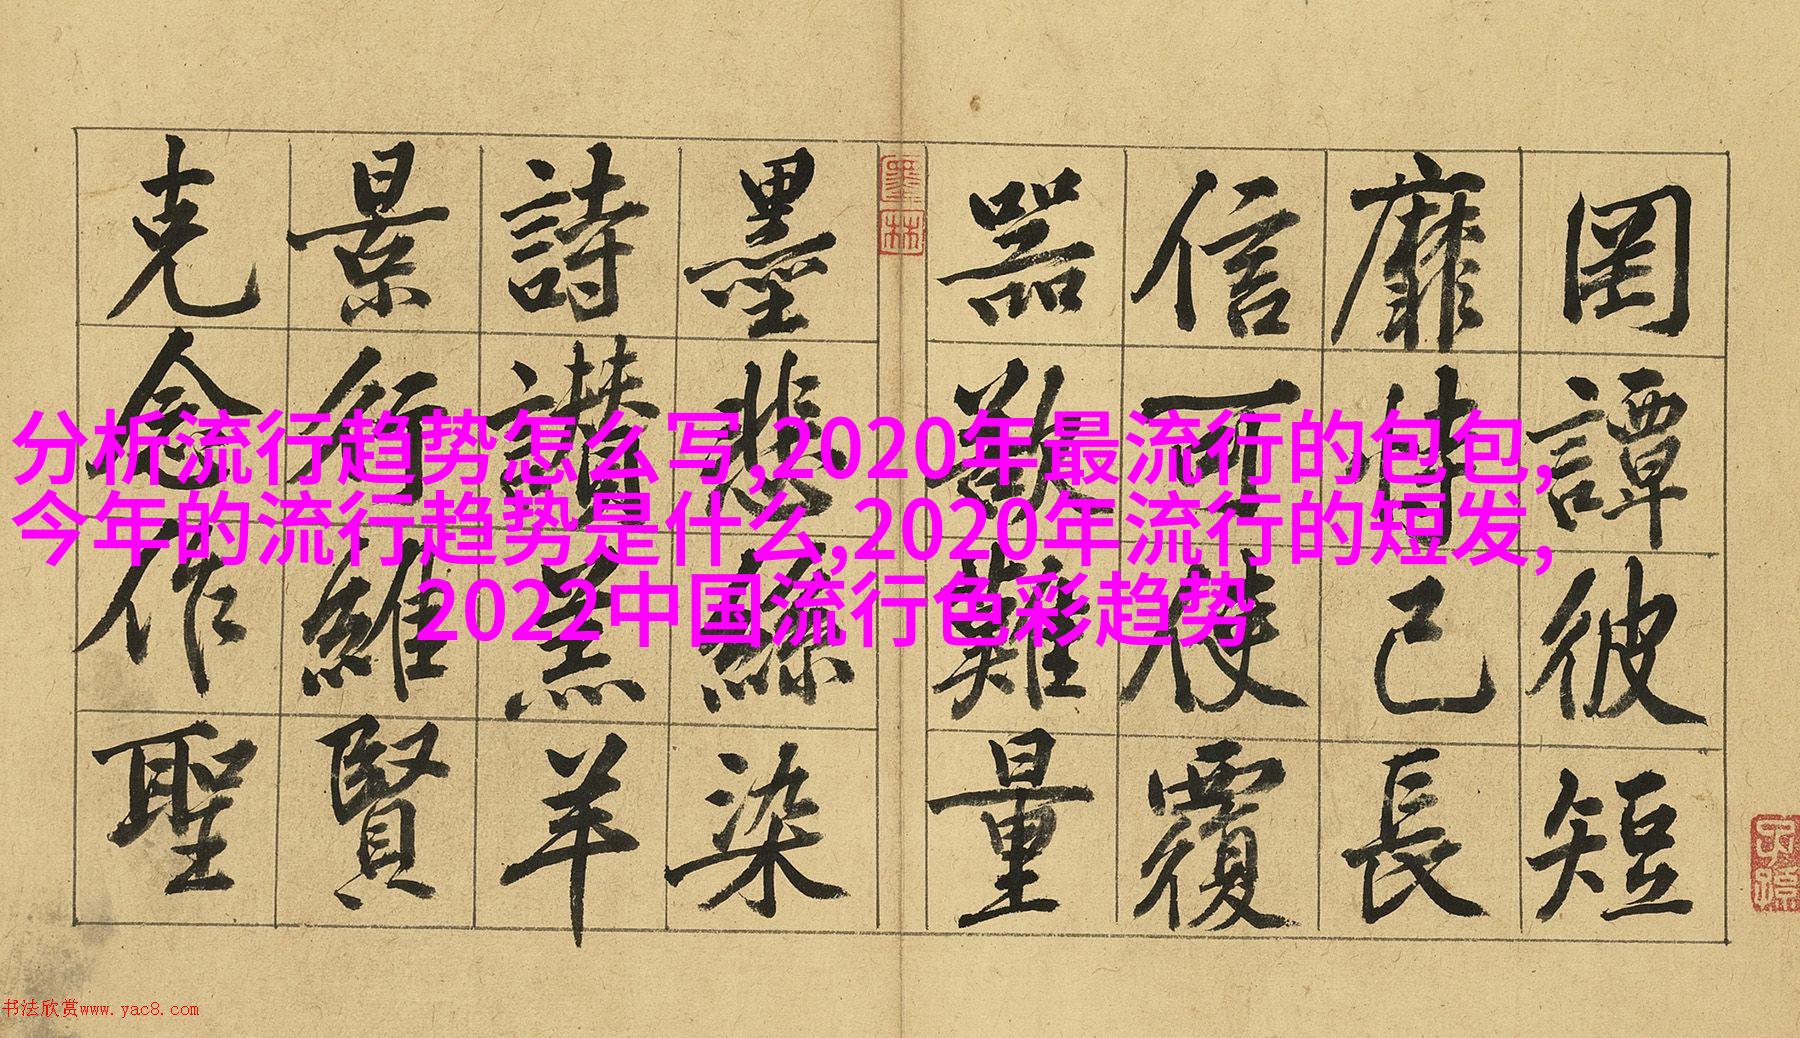 罔譚彼短
靡恃己長
信可使覆
器欲難量
墨悲絲染
詩讃羔羊
景行維賢
克念作聖
墨林
分析流行趋势怎么写,2020年最流行的包包,
今年的流行趋势是什么,2020年流行的短发,
2022中国流行色彩趋势
书法欣赏www.yac8.com